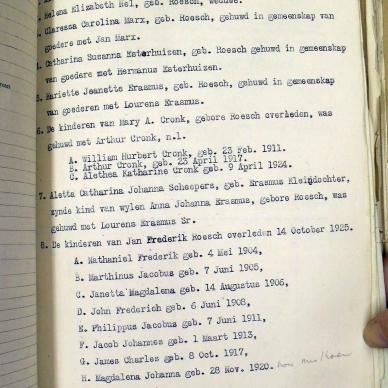 Helena Elizabeth Nel, geb. Roesch, weduwe.
Claressa Carolina Marx, geb. Roesch, gehuwd in gemeenskap van
goedere met Jan Marx.
4. Catharina Susanna Esterhuizen, geb. Roesch gehuwd in gemeenskap
van goedere met Hermanus Esterhuizen.
5. Mariette Jeanette Erasmus, geb. Roesch, gehuwd in gemeenskap
van goederen met Lourens Erasmus.
6. De kinderen van Mary A. Cronk, gebore Roesch overleden, was
gehuwd met Arthur Cronk, n.l.
A. William Hurbert Cronk, geb. 23 Feb. 1911.
B. Arthur Cronk, geb. 23 April 1917.
C. Alethea Katharine Cronk geb. 9 April 1924.
7. Aletta Catharina Johanna Scheepers, geb. Erasmus Kleindochter,
zynde kind van wylen Anna Johanna Erasmus, gebore Roesch, was
gehuwd met Lourens Erasmus Sr.
8. De kinderen van Jan Frederik Roesch overleden 14 October 1925.
A. Nathaniel Frederik geb. 4 Mei 1904,
B. Marthinus Jacobus geb. 7 Juni 1905,
C. Janetta Magdalena geb. 14 Augustus 1906,
D. John Frederich geb. 6 Juni 1908,
E. Philippus Jacobus geb. 7 Juni 1911,
F. Jacob Johannes geb. 1 Maart 1913,
G. James Charles geb. 8 Oct. 1917,
H. Magdalena Johanna geb. 28 Nov. 1920.